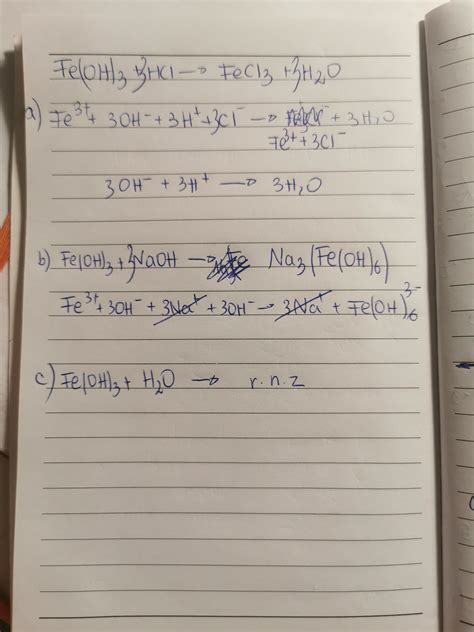 Fe(OH)3 + 3HCl → FeCl3 + 3H2O
a) Fe³⁺ + 3OH⁻ + 3H⁺ + 3Cl⁻ → + 3H2O
Fe³⁺ + 3Cl⁻
3OH⁻ + 3H⁺ → 3H2O
b) Fe(OH)3 + 3NaOH → Na3(Fe(OH)6)
Fe³⁺ + 3OH⁻ + 3Na⁺ + 3OH⁻ → 3Na⁺ + Fe(OH)6³⁻
c) Fe(OH)3 + H2O → r.n.z